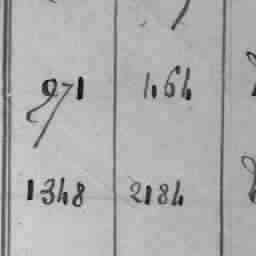 971 164
1348 2184